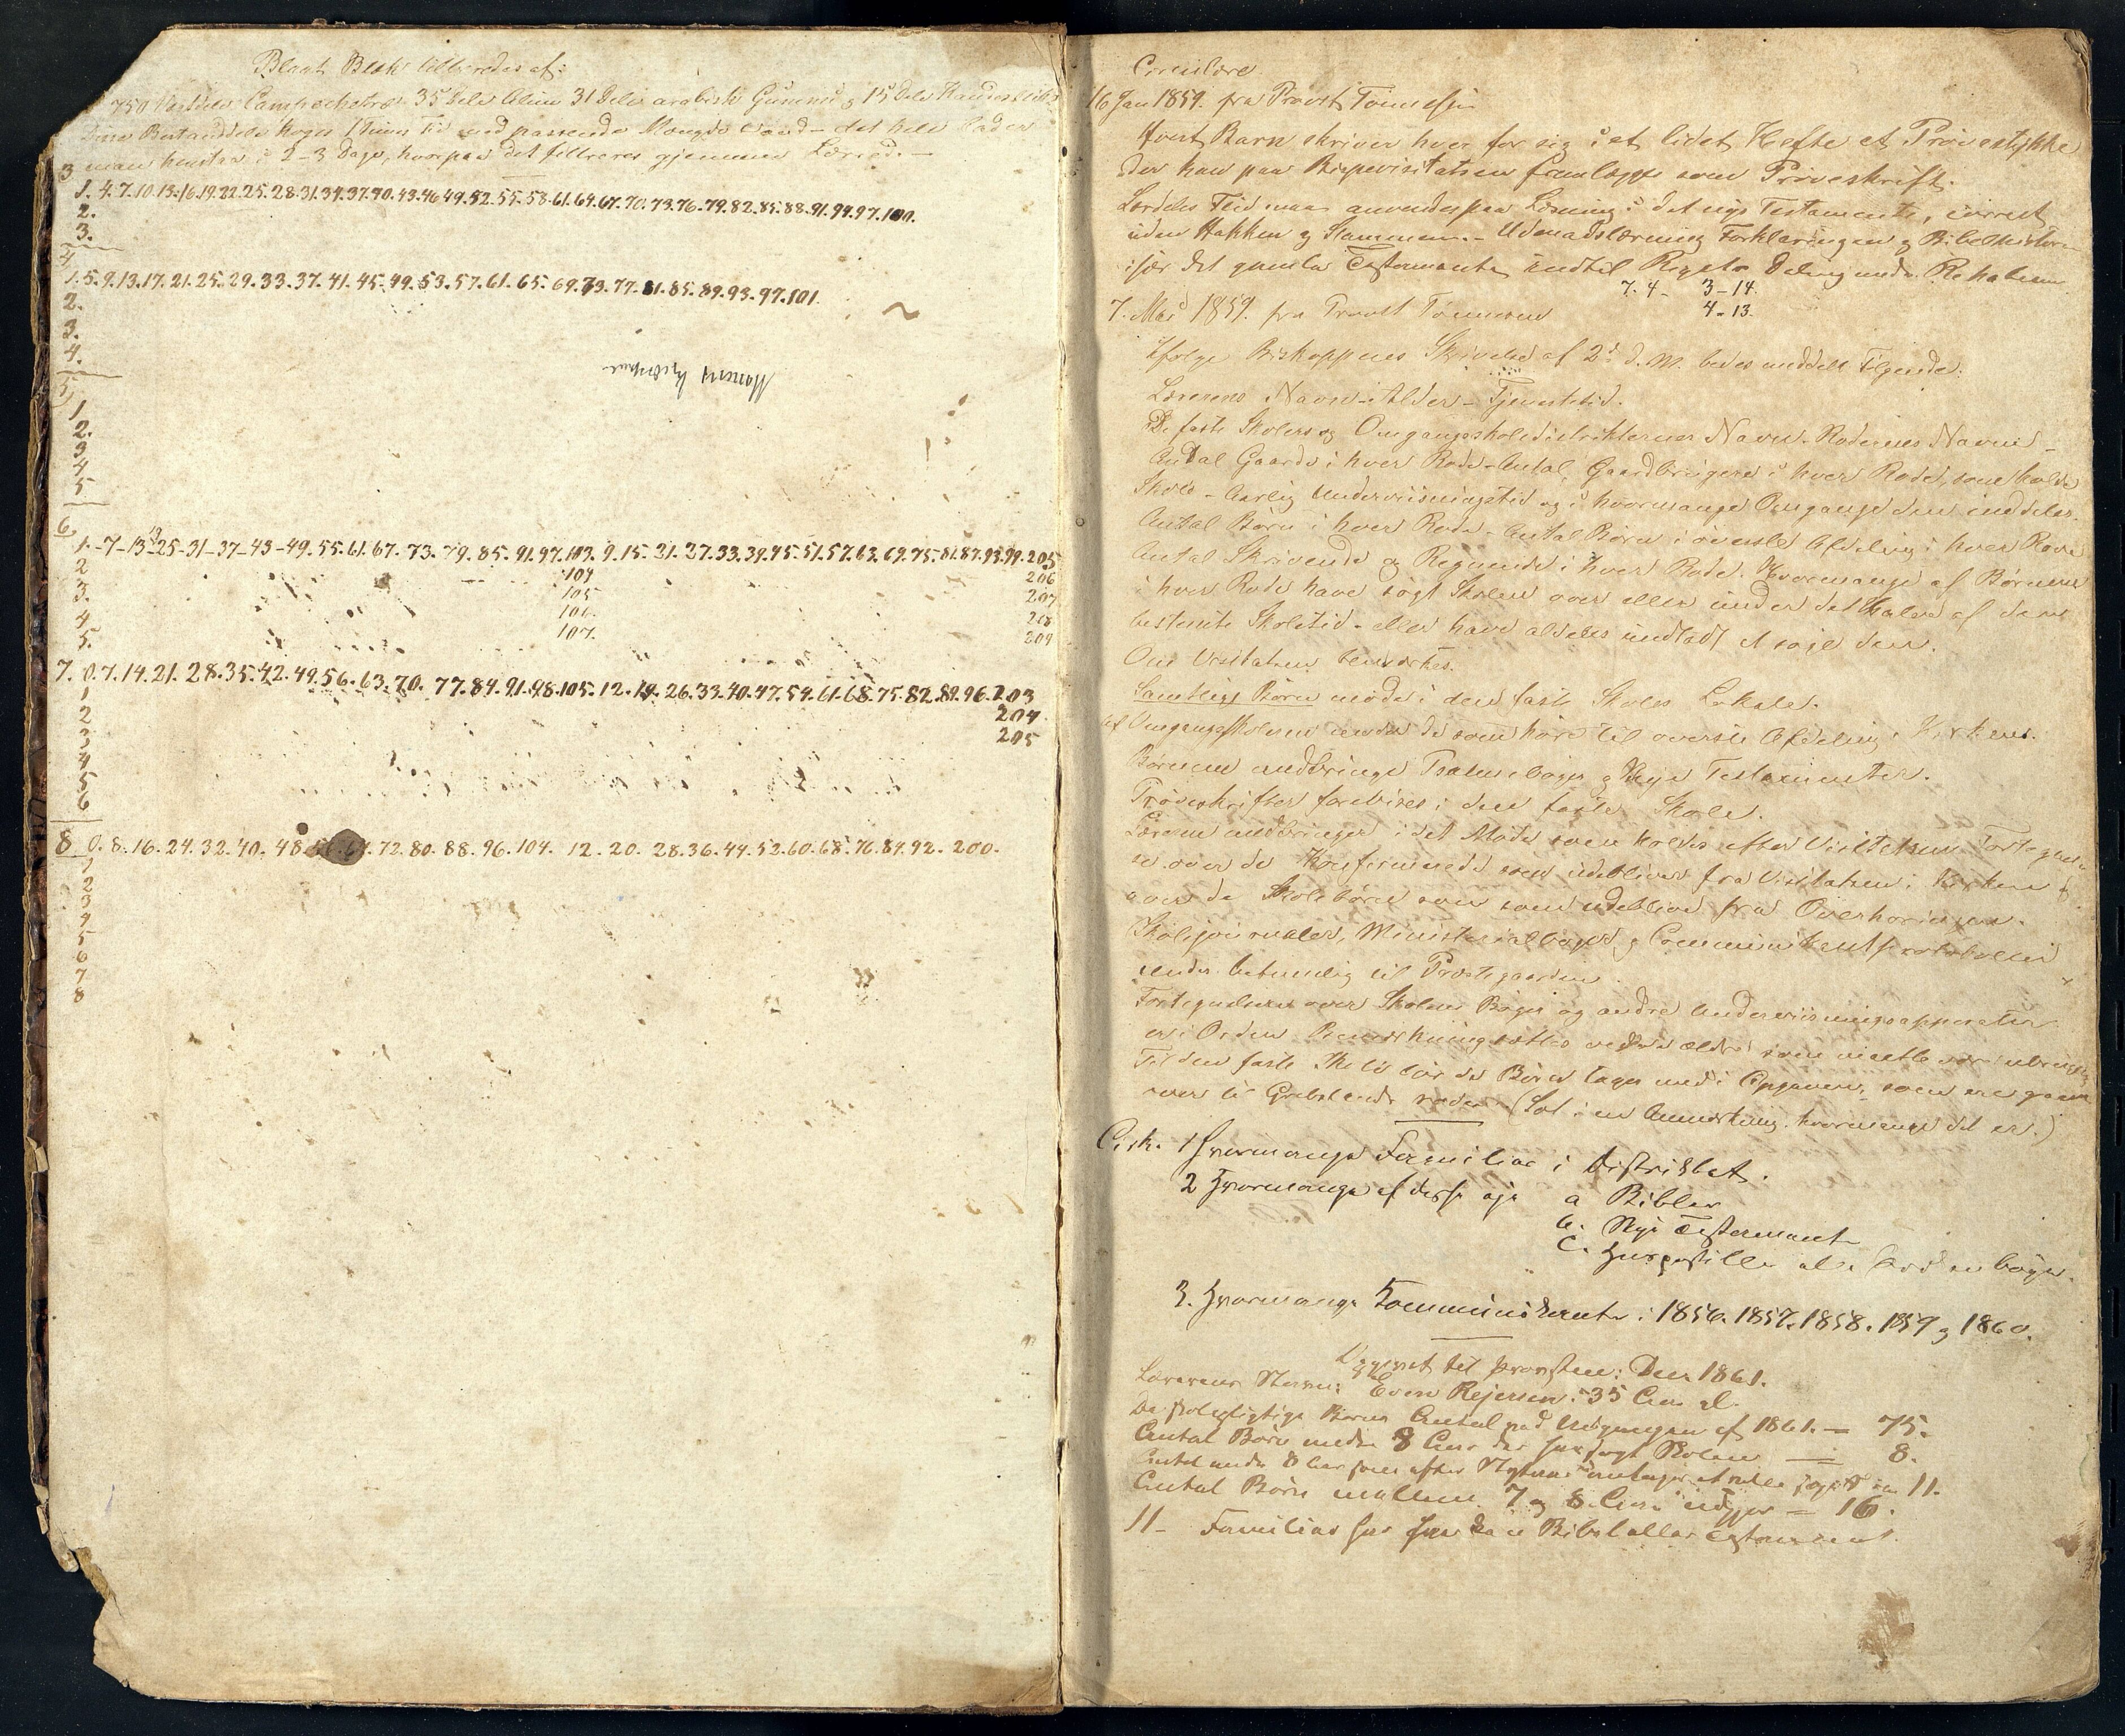 Blaat Blæk tilberedes af:
750 Vægtdele Campechetræ 35 Dele Alun 31 Dele arabisk Gummi og 15 Dele Kandissukker
Disse Bestanddele koges 1 Times Tid med passende Mængde Vand – det hele lader
man henstaa i 2–3 Dage, hvorpaa det filtreres gjennem Lærred. –
3
1. 4. 7. 10. 13. 16. 19. 22. 25. 28. 31. 34. 37. 40. 43. 46. 49. 52. 55. 58. 61. 64. 67. 70. 73. 76. 79. 82. 85. 88. 91. 94. 97. 100.
2.
3.
4
1. 5. 9. 13. 17. 21. 25. 29. 33. 37. 41. 45. 49. 53. 57. 61. 65. 69. 73. 77. 81. 85. 89. 93. 97. 101.
2.
3.
4.
5
1.
2.
3
4
5
6
1.–7–13–19 25–31–37–43–49. 55. 61. 67. 73. 79. 85. 91. 97. 103. 9. 15. 21. 27. 33. 39. 45. 51. 57. 63. 69. 75. 81. 87. 93. 99. 205
2 104 206
3. 105 207
4 106 208
5. 107. 209
7. 0. 7. 14. 21. 28. 35. 42. 49. 56. 63. 70. 77. 84. 91. 98. 105. 12. 19. 26. 33. 40. 47. 54. 61. 68. 75. 82. 89. 96. 203
1 204
2 205
3
4
5
6
8 0. 8. 16. 24. 32. 40. 48. 56. 64. 72. 80. 88. 96. 104. 12. 20. 28. 36. 44. 52. 60. 68. 76. 84. 92. 200.
1
2
3
4
5
6
7
8
Circulære
16 Jan 1859. fra Provst Tønnessen
Hvert Barn skriver hver for sig i et lidet Hefte et Prøvestykke
der kan paa Bispevisitatsen fremlægges som Prøveskrift.
Særdeles Flid maa anvendes paa Læsning i det nye Testamente, correct
uden Hakken og Stammen. – Udenadslærning Forklaringen og Bibelhistorien
især det gamle Testamente indtil Rigets Deling under Rehabeam
7. 4 – 3–14.
4–13.
7. Mai 1859. fra Provst Tønnesen
Ifølge Biskoppens Skrivelse af 2d d. M. bedes meddelt Følgende:
Lærerens Navn – Alder – Tjenestetid.
De faste Skolers og Omgangsskoledistrikternes Navn. Rodernes Navne –
Antal Gaarde i hver Rode – Antal Gaardbrugere i hver Rode, som holde
Skole – Aarlig Underviisningstid og i hvormange Omgange den inddeles.
Antal Børn i hver Rode – Antal Børn i øverste Afdeling i hver Rode
Antal Skrivende og Regnende i hver Rode. Hvormange af Børnene
i hver Rode have søgt Skolen over eller under det Halve af den
bestemte Skoletid – eller have aldeles undladt at søge den.
Om Visitatsen bemærkes.
Samtlige Børn møde i den faste Skoles Lokale.
Af Omgangsskolerne møder de som høre til øverste Afdeling i Kirken.
Børnene medbringe Psalmebøger og Nye Testamenter.
Prøveskrifter forevises i den faste Skole.
Læreren medbringer i det Møde som holdes efter Visitatsen Fortegnel-
se over de Konfirmerede som udeblive fra Visitatsen i Kirken og
over de Skolebørn som udeblive fra Overhøringen.
Skolejournaler, Ministerialbøger og Communikantprotokoller
sendes betimelig til Præstegaarden.
Fortegnelsen over Skolens Bøger og andre Underviisningsapparater
er i Orden Bemærkning sættes ved de ældre som maatte være ubrugelig
Til den faste Skole bør de Børn tages med i Opgaven, som ere gaaet
over til roder (Sæt i en Anmærkning hvormange det er.)
Cirk. 1 Hvormange Familier i Distriktet.
2 Hvormange af disse eje a Bibler
b. Nye Testament
c. Huspostille el. Andre bøger.
3. Hvormange Kommunikanter i 1856. 1857. 1858. 1859 og 1860.
Opgivet til provsten: Dec. 1861.
Lærerens Navn: Even Rejersen. 35 Aar gl.
De skolepligtige Børns Antal ved Udgangen af 1861. – 75.
Antal Børn under 8 Aar der har søgt Skolen – 8.
Antal under 8 Aar som efter antages at ville søge den 11.
Antal Børn mellem 7 og 8 Aar udgjør – 16.
11 – Familier har ikke Bibel eller Testament.